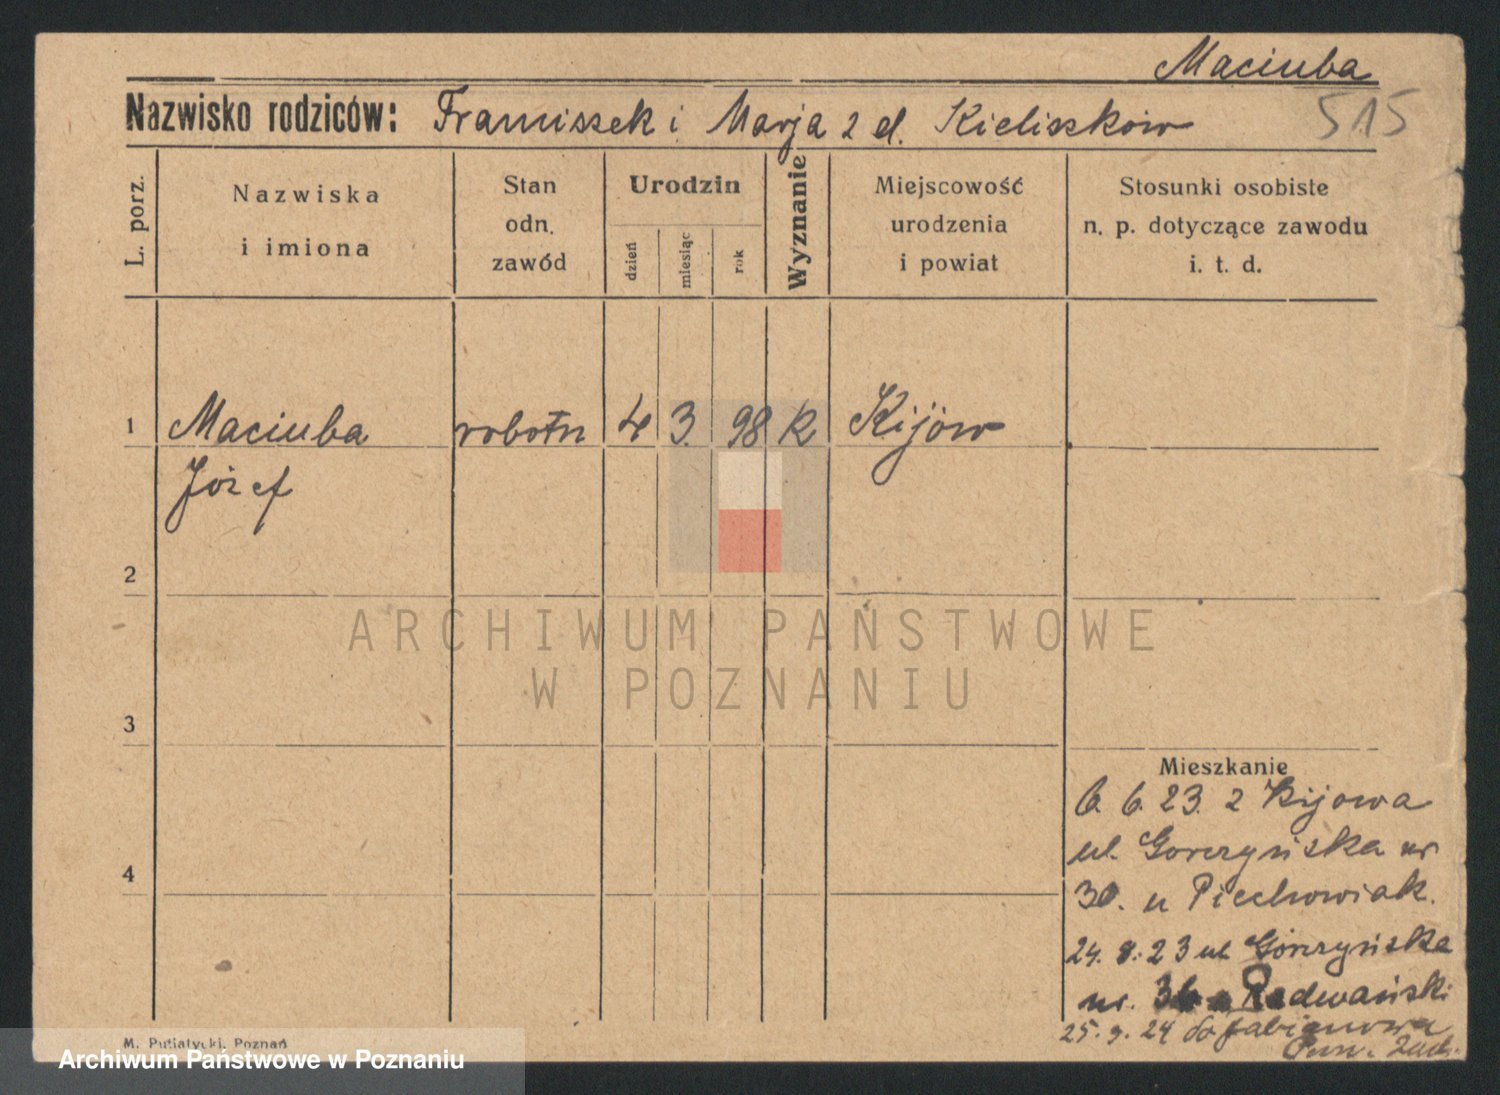 Maciuba
Nazwisko rodziców: Franciszek i Marja z d. Kieliszków
515
L. porz.
Nazwiska
i imiona
Stan
odn.
zawód
Urodzin
dzień
miesiąc
rok
Wyznanie
Miejscowość
urodzenia
i powiat
Stosunki osobiste
n. p. dotyczące zawodu
i. t. d.
1 Maciuba robotn 4 3. 98 k Kijów
Józef
2
ARCHIWUM PAŃSTWOWE
W POZNANIU
3
Mieszkanie
6. 6. 23. z Kijowa
ul. Gorczyńska nr
30. u Piechowiak.
4
24. 8. 23 ul Górczyńska
nr. 36 u Radwański
25. 9. 24 do Fabianowa
M. Putiatycki, Poznań
Archiwum Państwowe w Poznaniu